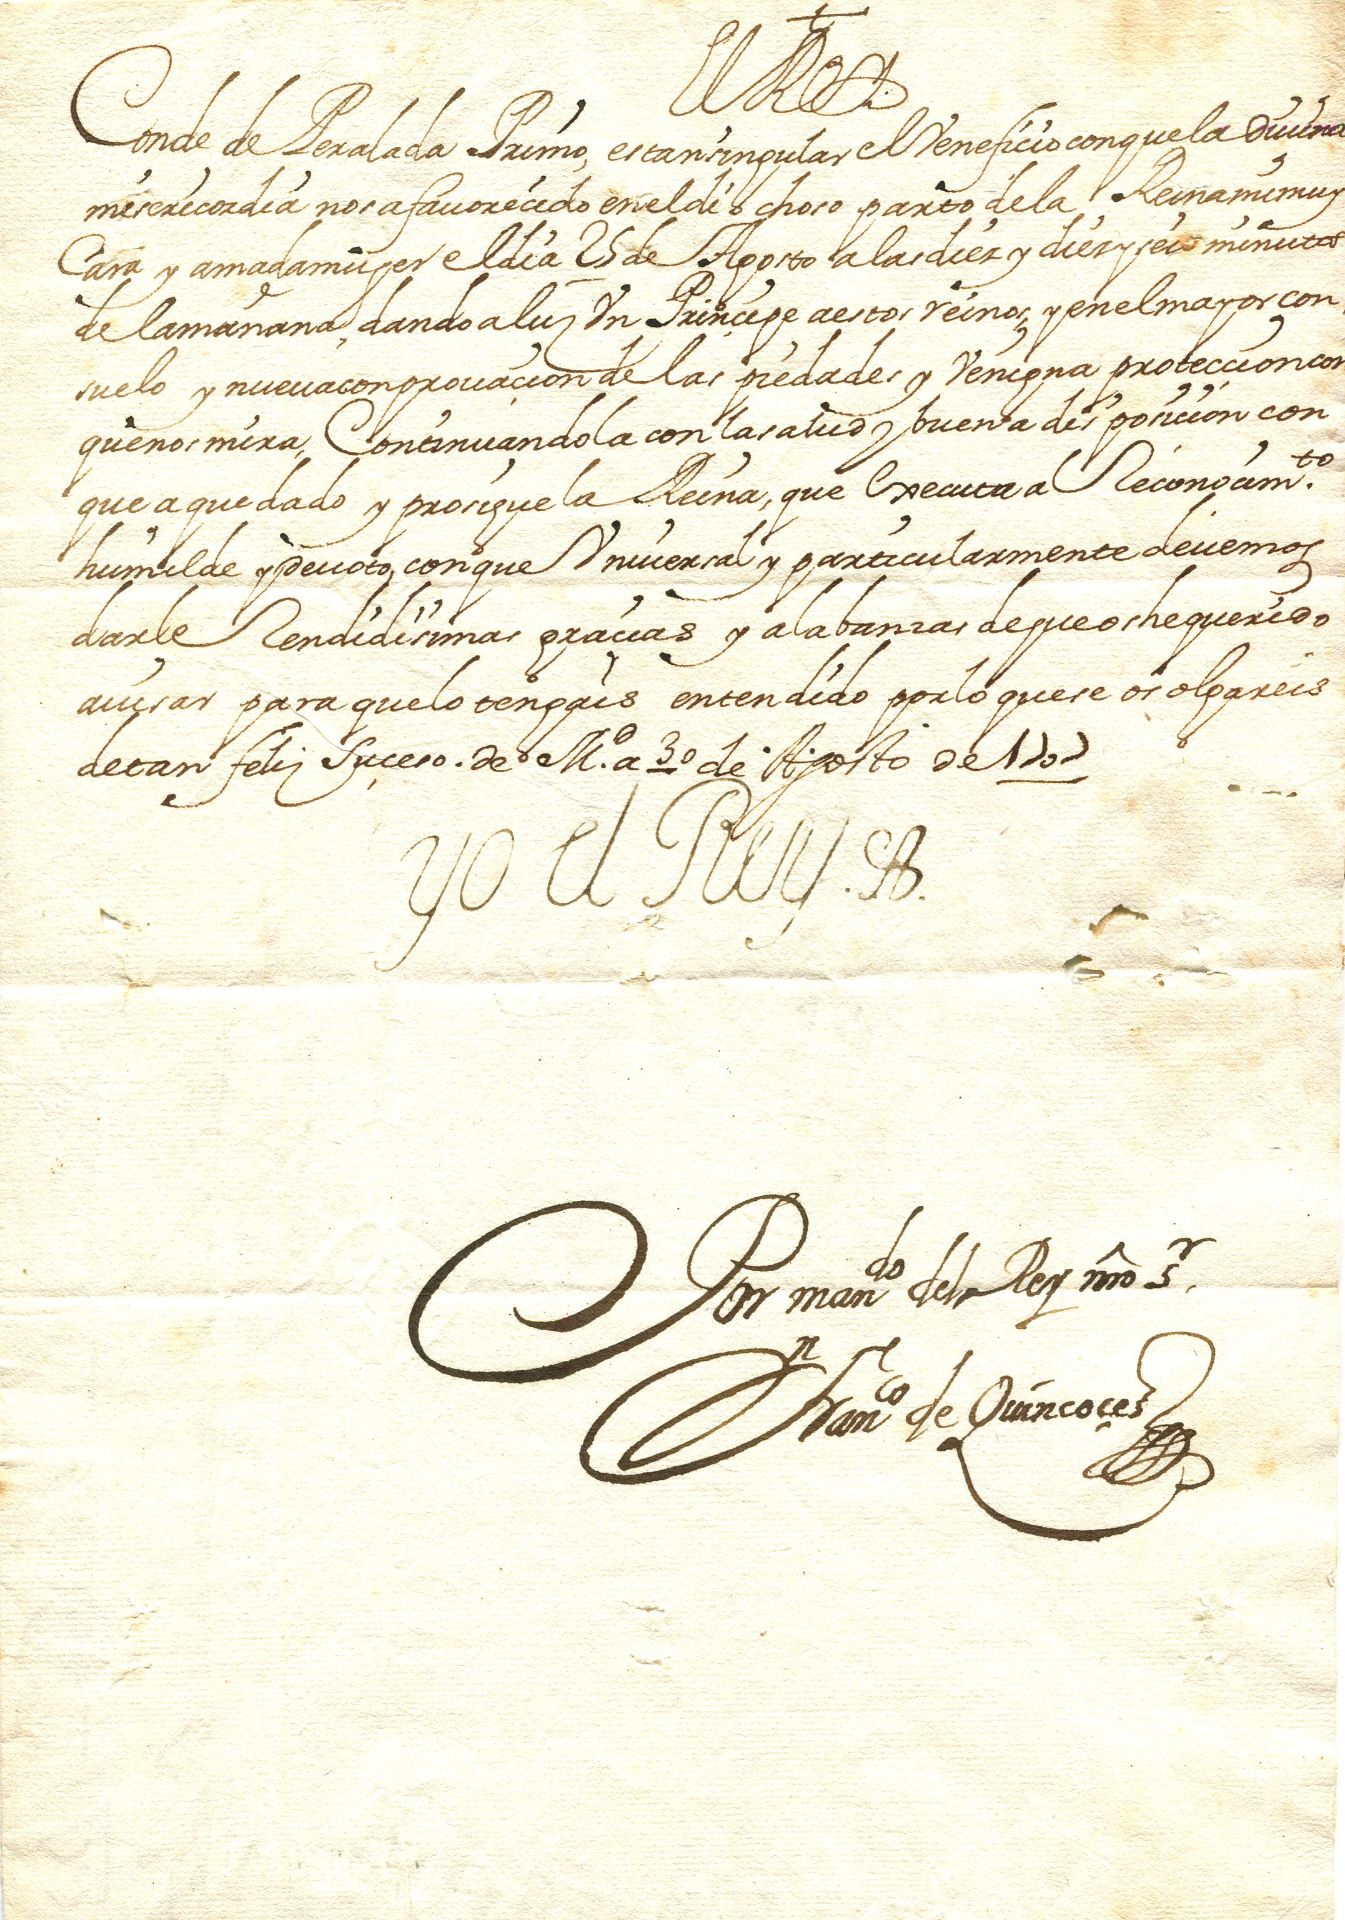 El Rey
Conde de Peralada Primo, es tan singular el Veneficio con que la divina
misericordia nos a favorecido en el dichoso parto de la Reina mi muy
Cara y amada muger el dia 25 de Agosto a las diez y diez y seis minutos
de la mañana, dando a luz Vn Principe a estos reinos, y en el mayor con
suelo y nueva conprovacion de las piedades y Venigna proteccion con
que nos mira, Continuandola con la salud y buena disposicion con
que a quedado y prosigue la Reina, que executa al Reconocim.to
humilde y devoto, con que Vniversal y particularmente devemos
darle Rendidisimas gracias y alabanzas de que os he querido
avisar para que lo tengais entendido por lo que se os olgareis
de tan feliz suceso. de M.d a 30 de Agosto de 1707
Yo el Rey.
Por man.do del Rey nro s.r
Fran.co de Quincoçes